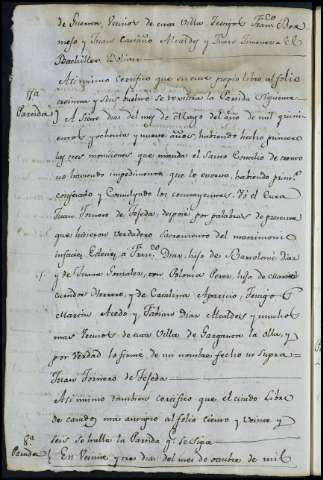 de Pereira Vecinos de esta Villa testigos Franco
Alcaldes y
Bachiller
Asi mismo certifico que en este propio libro al folio
7ª
Partida
y seis buelto se rexistra la Partida siguiente
A siete dias del mes de Mayo del año de mil quini
entos y ochenta y nueve años, habiendo hecho primero
las tres moniciones que manda el Sacro Concilio de trento
no haviendo impedimento que lo estorve, habiendo primo
confesado y Comulgado los contrayentes, Yo el Cura
Juan Tornero de Tejeda, despose por palabras de presente
que hicieron verdadero Sacramento del matrimonio
infacie Eclesie, a Franco Diaz, hijo de Bartolome Diaz
y de Gonzalez, con Polonia Perez, hija de
Herrero, y de Catalina Aparicio, Testigos
Martin Azedo y Fabian Diaz Alcaldes y muchos
mas Vecinos de esta Villa de Garganta la Olla, y
por verdad lo firme de mi nombre fecho ut supra =
Juan Tornero de Tejeda
Asi mismo tambien certifico que el citado Libro
de casados mas antiguo al folio ciento y veinte y
seis se halla la Partida qe se sigue
8ª
Partida
En Veinte y tres dias del mes de octubre de mil